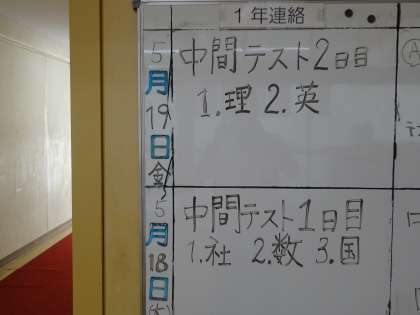 1年連絡
5月19日金
中間テスト2日目
1.理 2.英
5月18日
中間テスト1日目
1.社 2.数 3.国